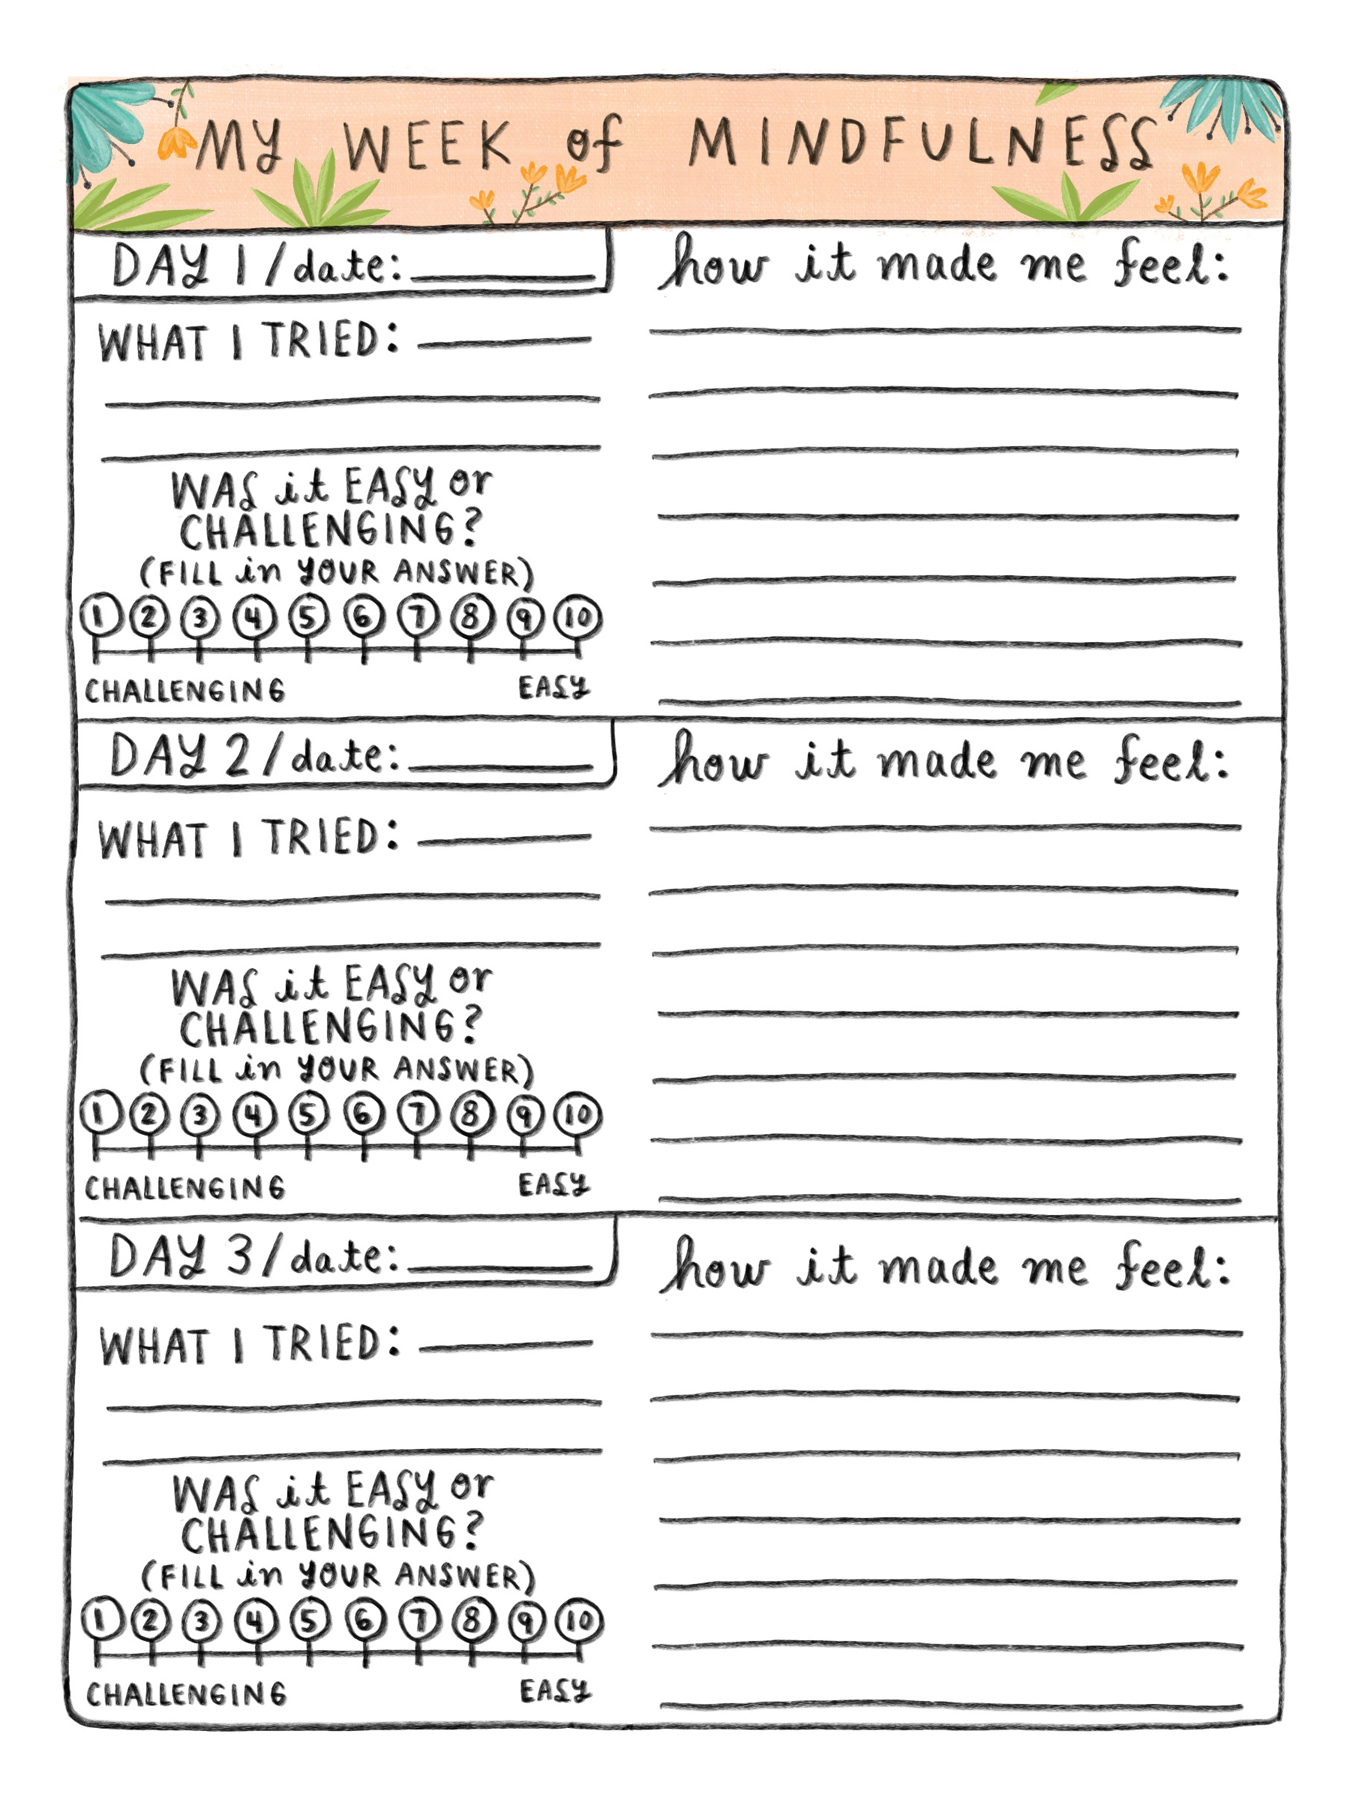 MY WEEK of MINDFULNESS
DAY 1/date:
WHAT I TRIED:
WAS it EASY or
CHALLENGING?
(FILL in YOUR ANSWER)
1 2 3 4 5 6 7 8 9 10
CHALLENGING EASY
how it made me feel:
DAY 2/date:
WHAT I TRIED:
WAS it EASY or
CHALLENGING?
(FILL in YOUR ANSWER)
1 2 3 4 5 6 7 8 9 10
CHALLENGING EASY
how it made me feel:
DAY 3/date:
WHAT I TRIED:
WAS it EASY or
CHALLENGING?
(FILL in YOUR ANSWER)
1 2 3 4 5 6 7 8 9 10
CHALLENGING EASY
how it made me feel: